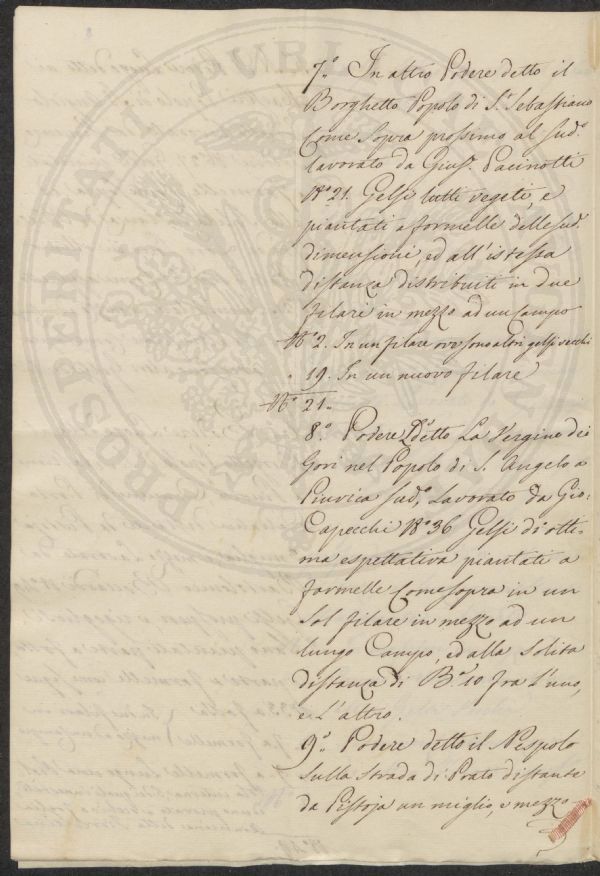 7.° In altro Podere detto il
Borghetto Popolo di S. Sebastiano
Come Sopra prossimo al sud.°
lavorato da Gius. Pacinotti
N° 21. Gelsi tutti vegeti, e
piantati a formelle delle sud.
dimensioni, ed all'istessa
distanza distribuiti in due
filari in mezzo ad un Campo
N° 2. In un filare ove sono altri gelsi vecchi
" 19. In un nuovo filare
N° 21..
8.° Podere detto La Vergine dei
Gori nel Popolo di S. Angelo a
Piuvica sud.°, Lavorato da Gio:
Capecchi N° 36 Gelsi di otti-
ma espettativa piantati a
formelle Come sopra in un
sol filare in mezzo ad un
lungo Campo, ed alla Solita
distanza di B.° 10 fra l'uno,
e l'altro.
9.° Podere detto il Nespolo
sulla strada di Prato distante
da Pistoja un miglio, e mezzo